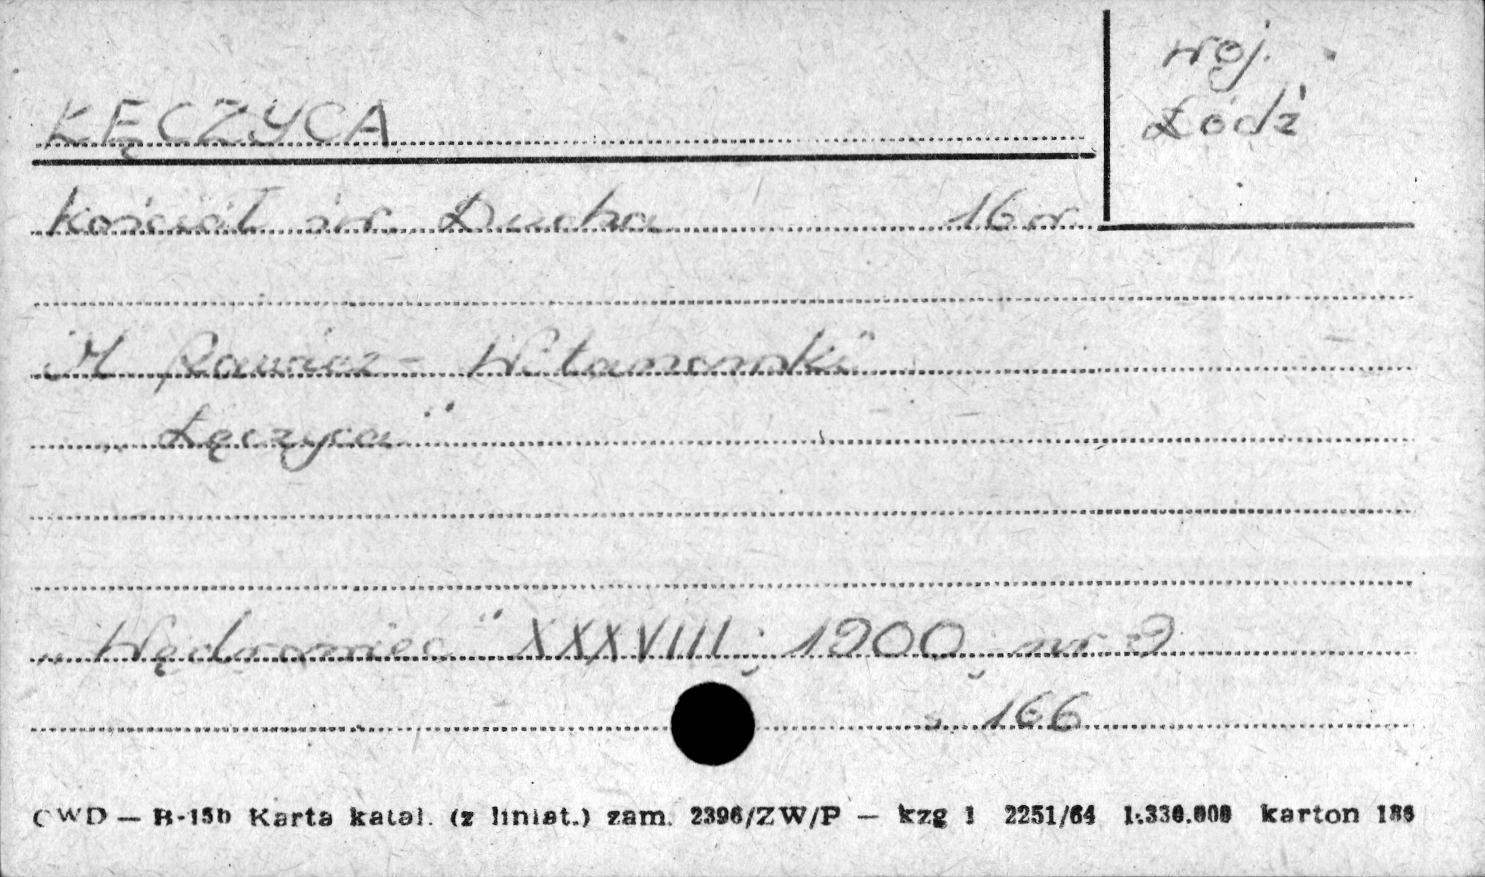 woj.
Łódź
ŁĘCZYCA
Kościół św. Ducha 16 w.
M. Rawicz-Witanowski
„Łęczyca"
„Wędrowiec" XXXVIII; 1900; nr 9
s. 166
CWD — B-15b Karta katal. (z liniat.) zam. 2396/ZW/P — kzg 1 2251/64 1.330.000 karton